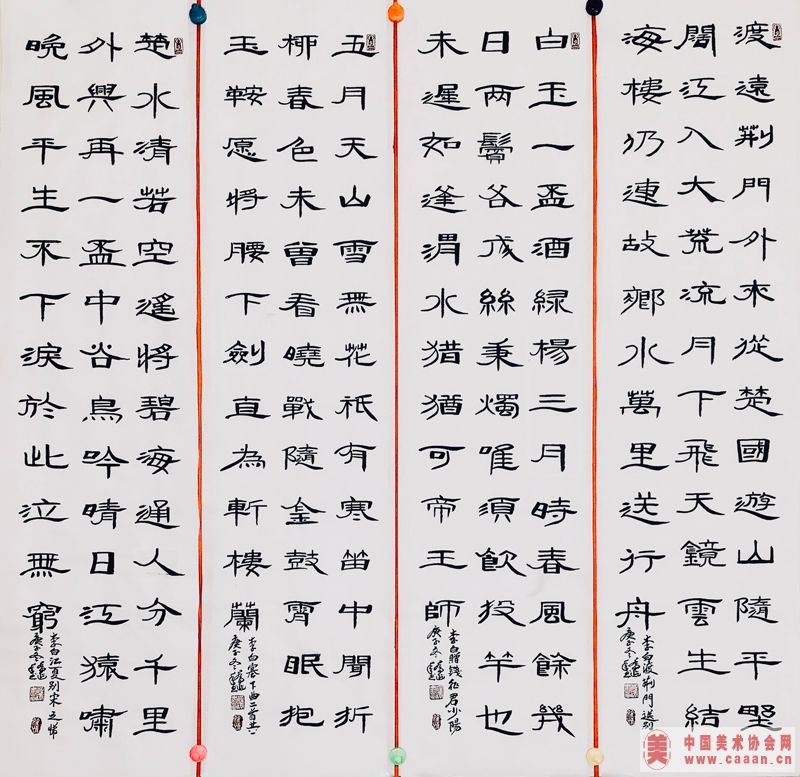 渡遠荆門外來從楚國遊山隨平野
闊江入大荒流月下飛天鏡雲生結
海樓仍連故鄉水萬里送行舟
李白渡荆門送别
庚子冬
白玉一盃酒緑楊三月時春風餘幾
日两鬢各成絲秉燭唯須飲投竿也
未遲如逢渭水猎猶可帝王師
李白贈錢征君少陽
庚子冬
五月天山雪無花祇有寒笛中聞折
柳春色未曾看曉戰隨金鼓宵眠抱
玉鞍愿將腰下劍直為斬樓蘭
李白塞下曲
庚子冬
楚水清若空遥將碧海通人分千里
外興再一盃中谷鳥吟晴日江猿嘯
晚風平生不下淚於此泣無窮
李白江夏别宋之悌
庚子冬
美 中国美术协会网
www.caaan.cn